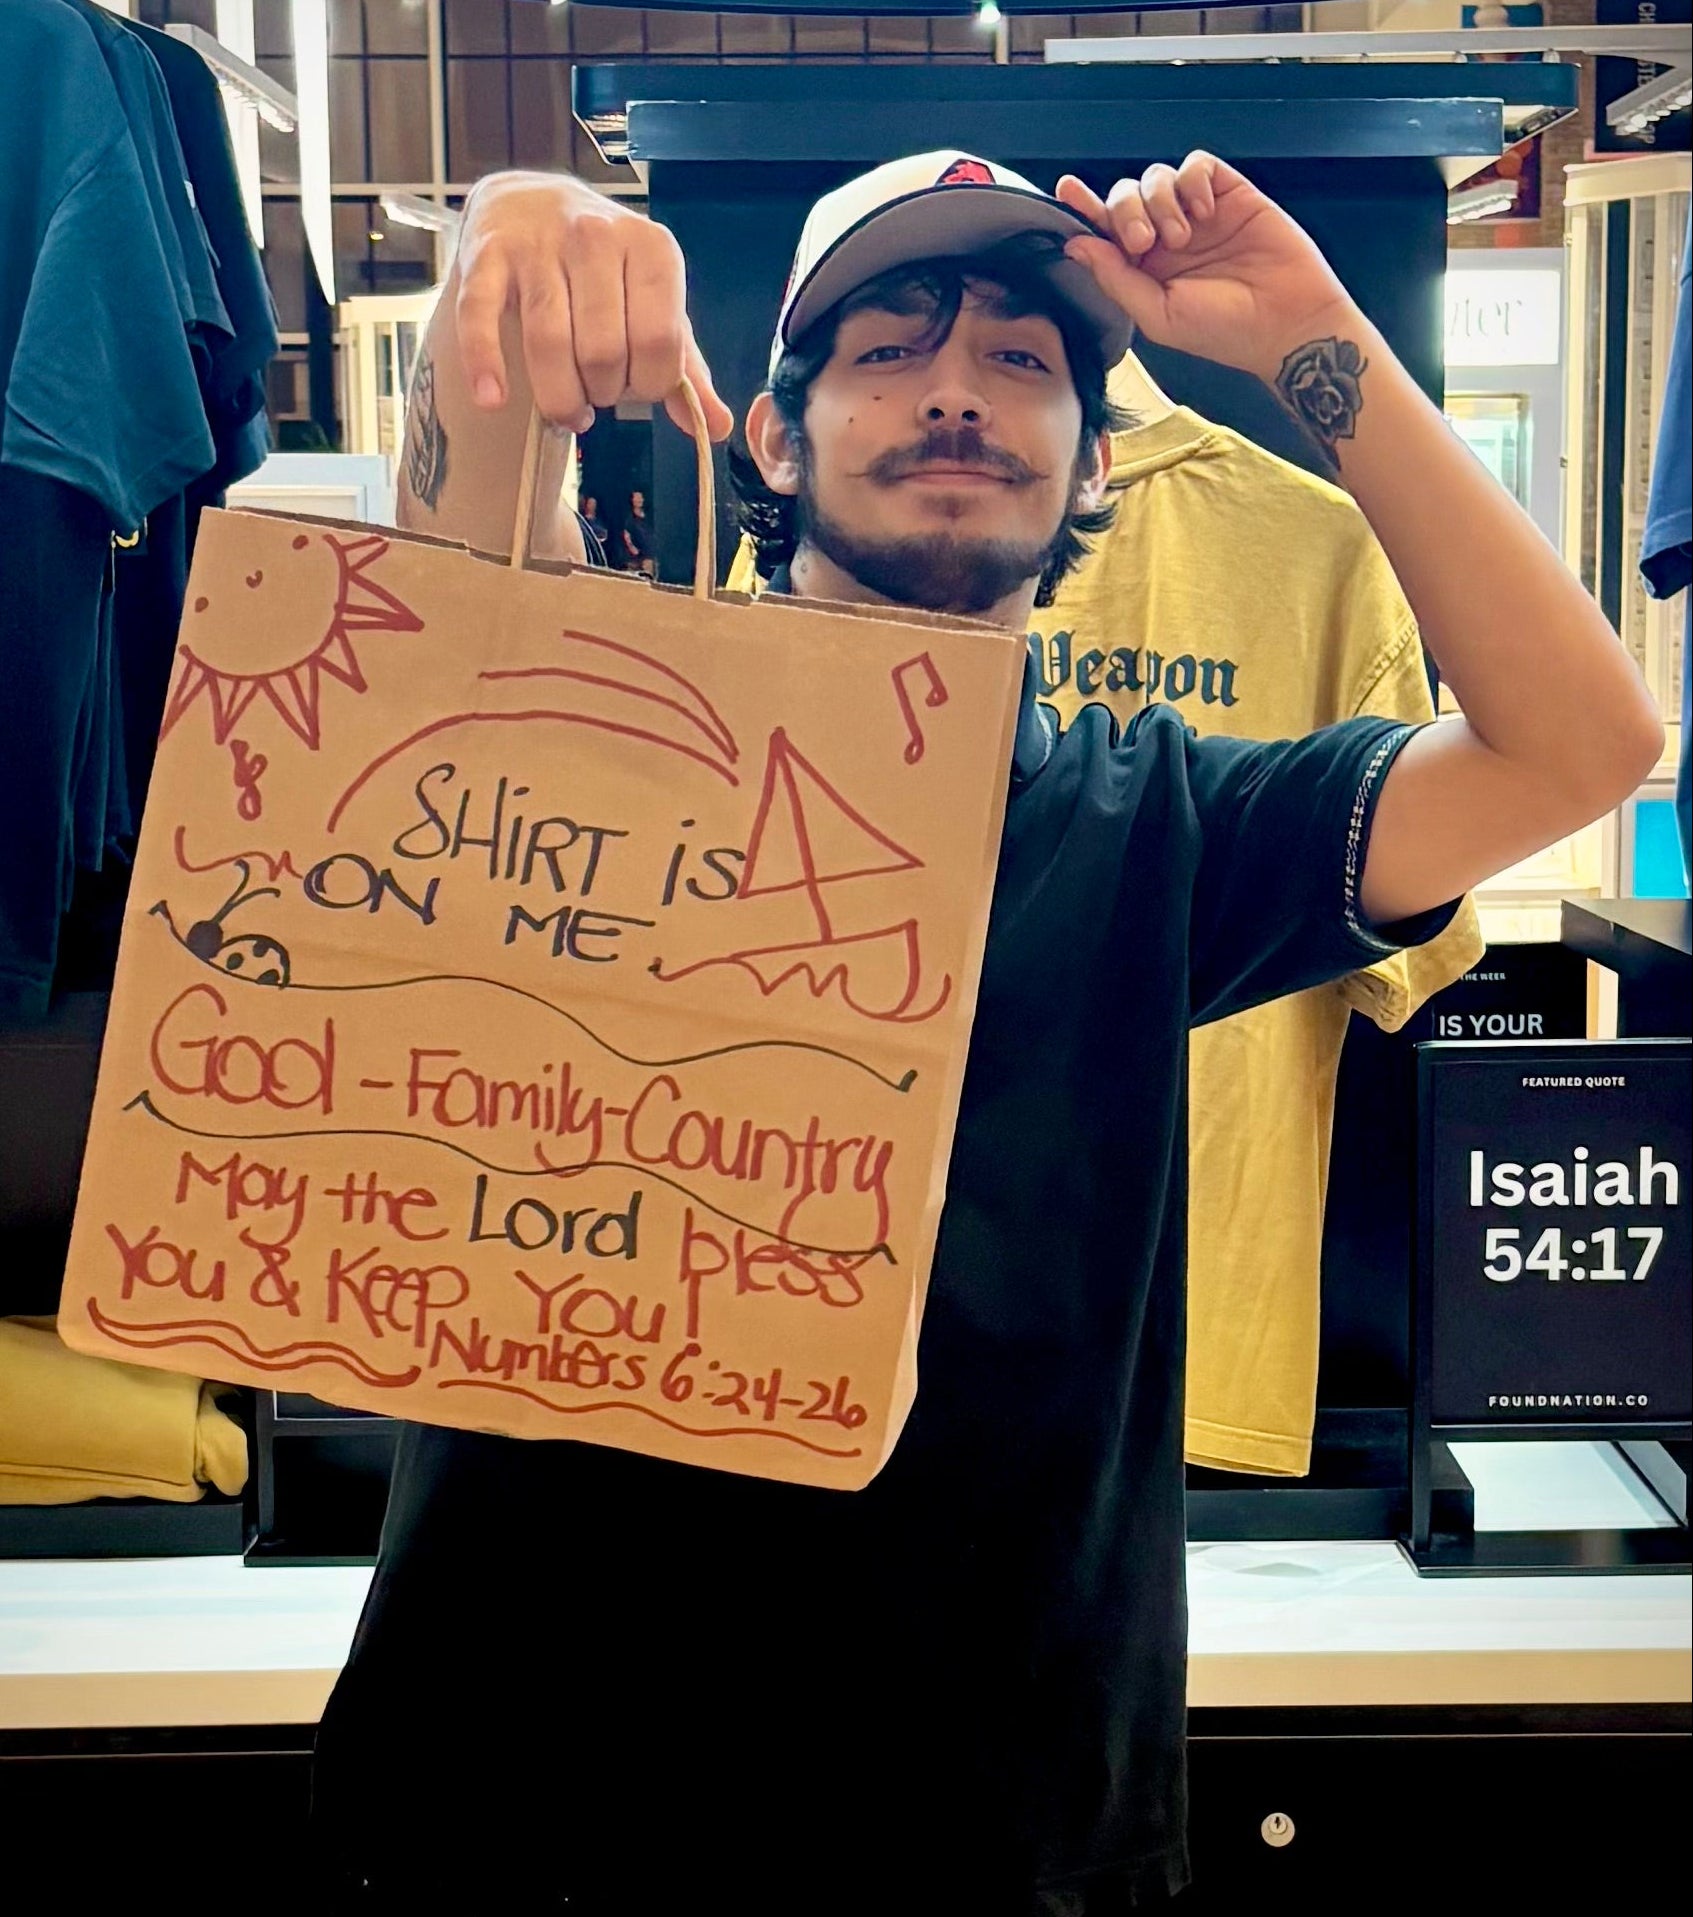 SHiRT is
ON ME.
God - Family - Country
May the Lord bless
You & Keep You!
Numbers 6:24-26
Weapon
THE WEEK
IS YOUR
FEATURED QUOTE
Isaiah
54:17
FOUNDNATION.CO